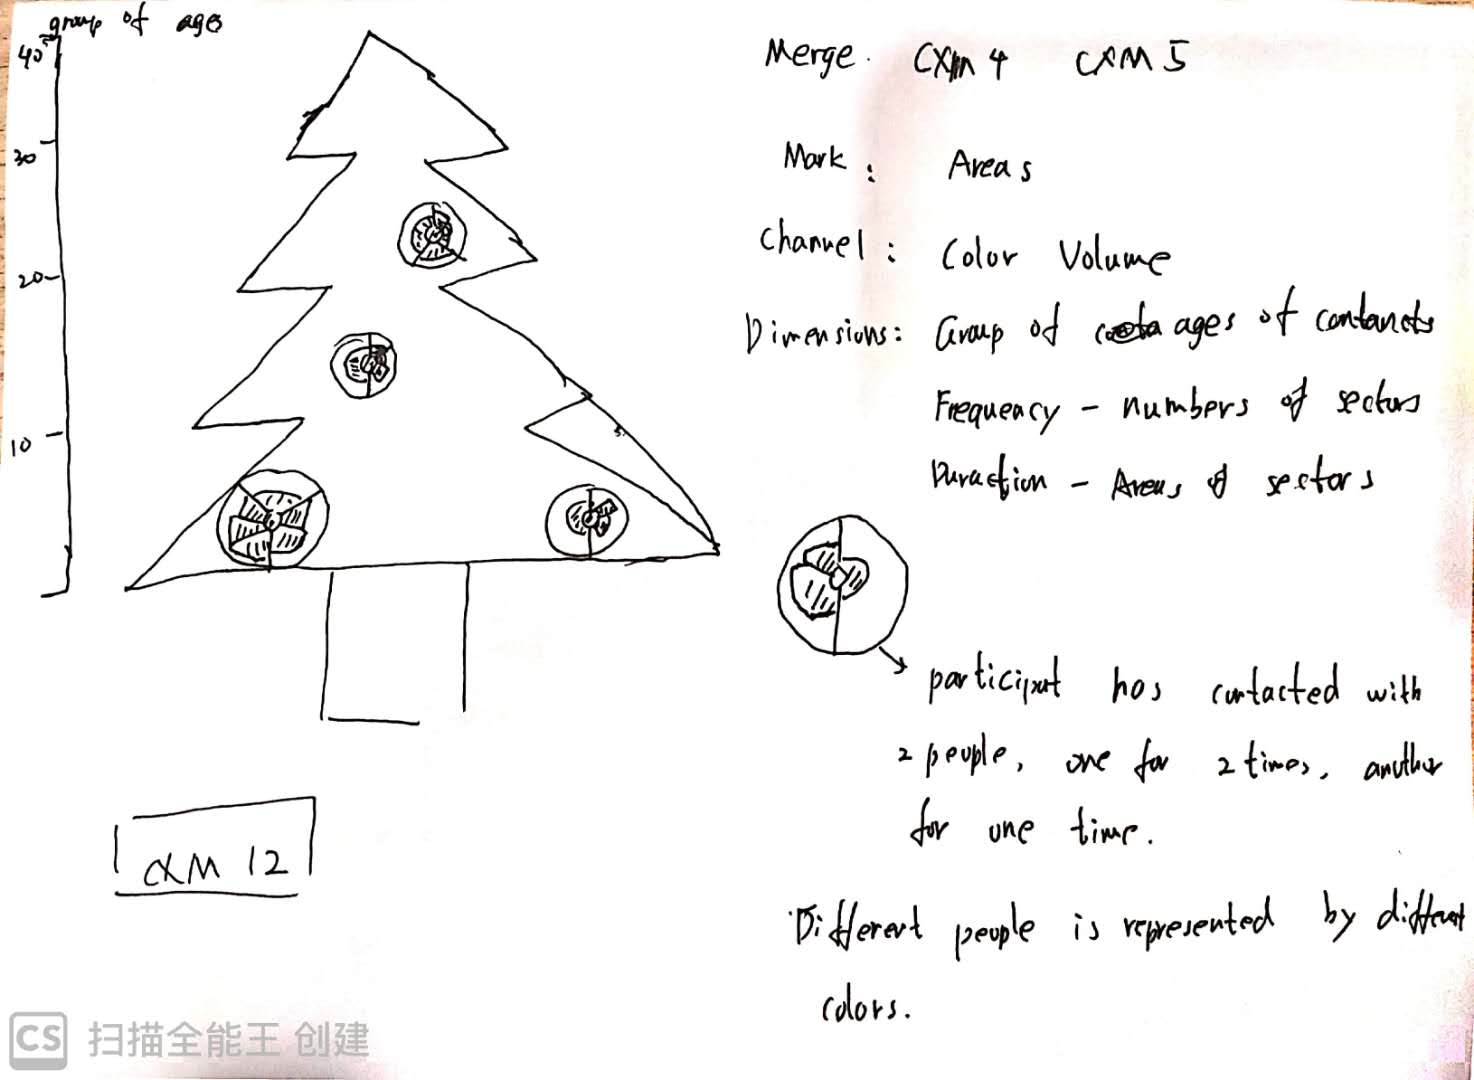 group of ages
40
30
20
10
CXM 12
Merge. CXM 4 CXM 5
Mark: Areas
Channel: Color Volume
Dimensions: Group of ages of contancts
Frequency - numbers of sectors
Duraction - Areas of sectors
participant has contacted with
2 people, one for 2 times, another
for one time.
Different people is represented by different
colors.
CS 扫描全能王 创建